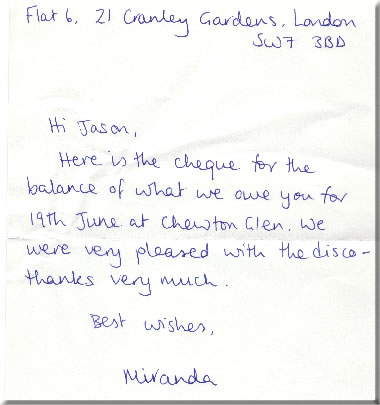 Flat 6, 21 Cranley Gardens, London
SW7 3BD
Hi Jason,
Here is the cheque for the
balance of what we owe you for
19th June at Chewton Glen. We
were very pleased with the disco -
thanks very much.
Best wishes,
Miranda